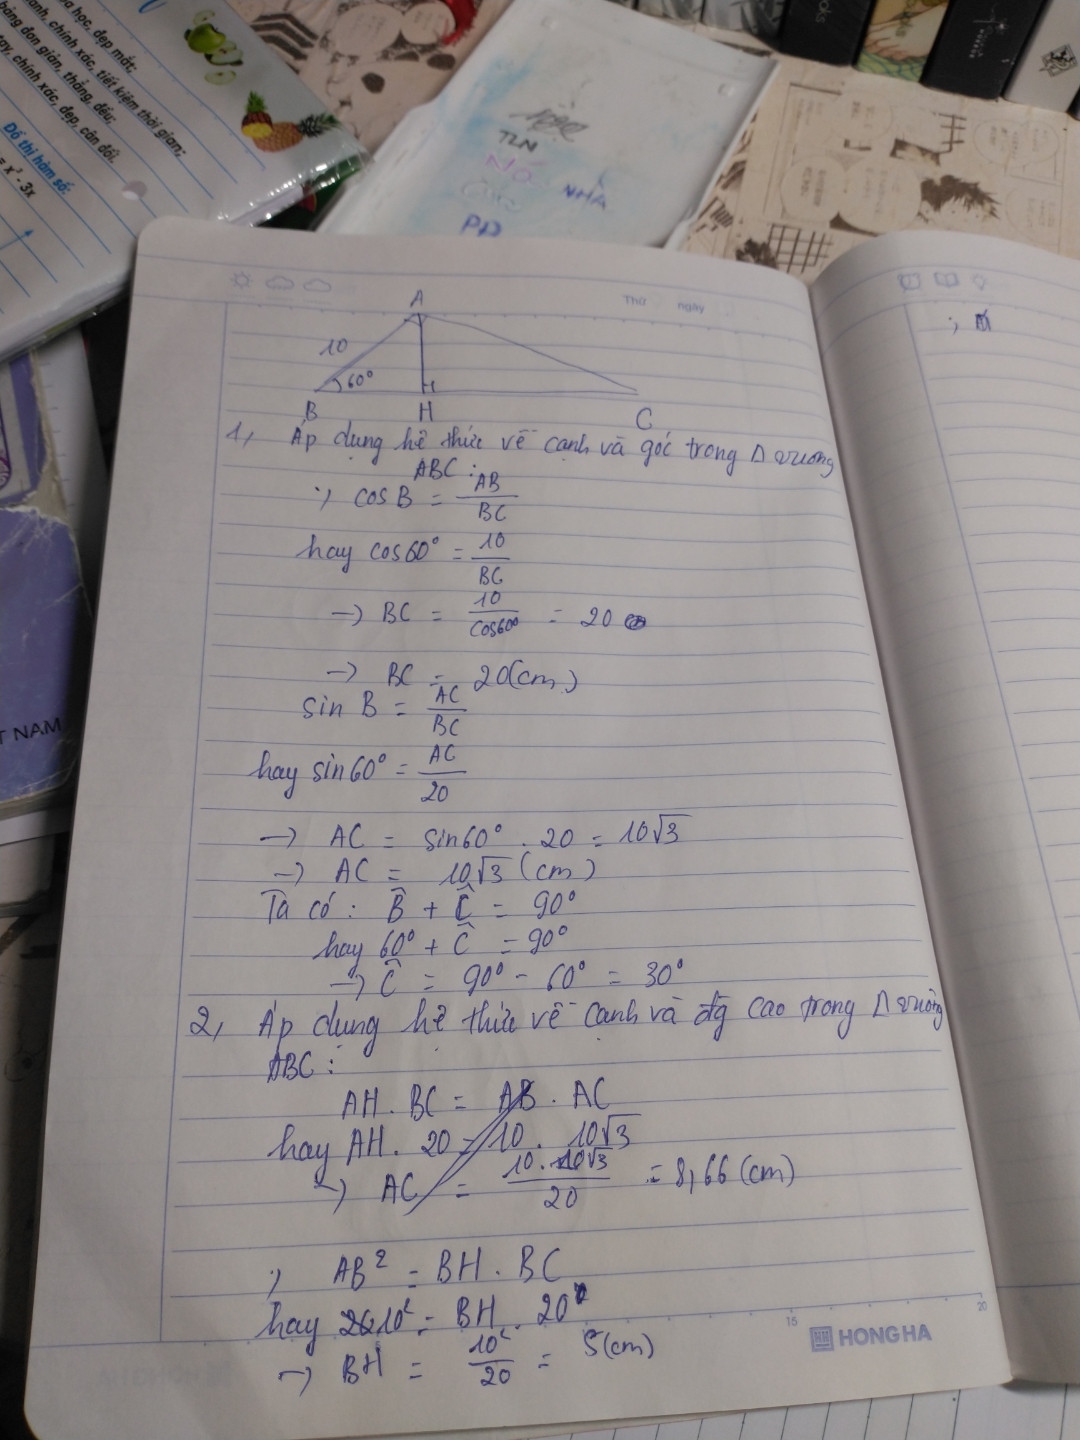 a học, đẹp mắt;
anh, chính xác, tiết kiệm thời gian;
bảng đơn giản, thẳng, đều;
tay, chính xác, đẹp, cân đối.
Đồ thị hàm số:
= x² - 3x
TLN
NHÀ
PP
T NAM
Thứ ngày
A
10
60°
B H C
1, Áp dụng hệ thức về cạnh và góc trong Δ vuông
ABC:
; cos B = AB/BC
hay cos60° = 10/BC
→ BC = 10/cos60° = 20
→ BC = 20(cm)
sin B = AC/BC
hay sin60° = AC/20
→ AC = sin60° . 20 = 10√3
→ AC = 10√3 (cm)
Ta có: B̂ + Ĉ = 90°
hay 60° + Ĉ = 90°
→ Ĉ = 90° - 60° = 30°
2, Áp dụng hệ thức về cạnh và đg cao trong Δ vuông
ABC:
AH . BC = AB . AC
hay AH . 20 = 10 . 10√3
→ AC = 10.10√3/20 = 8,66 (cm)
; AB² = BH . BC
hay 10² = BH . 20
→ BH = 10²/20 = 5(cm)
15
20
HONG HA